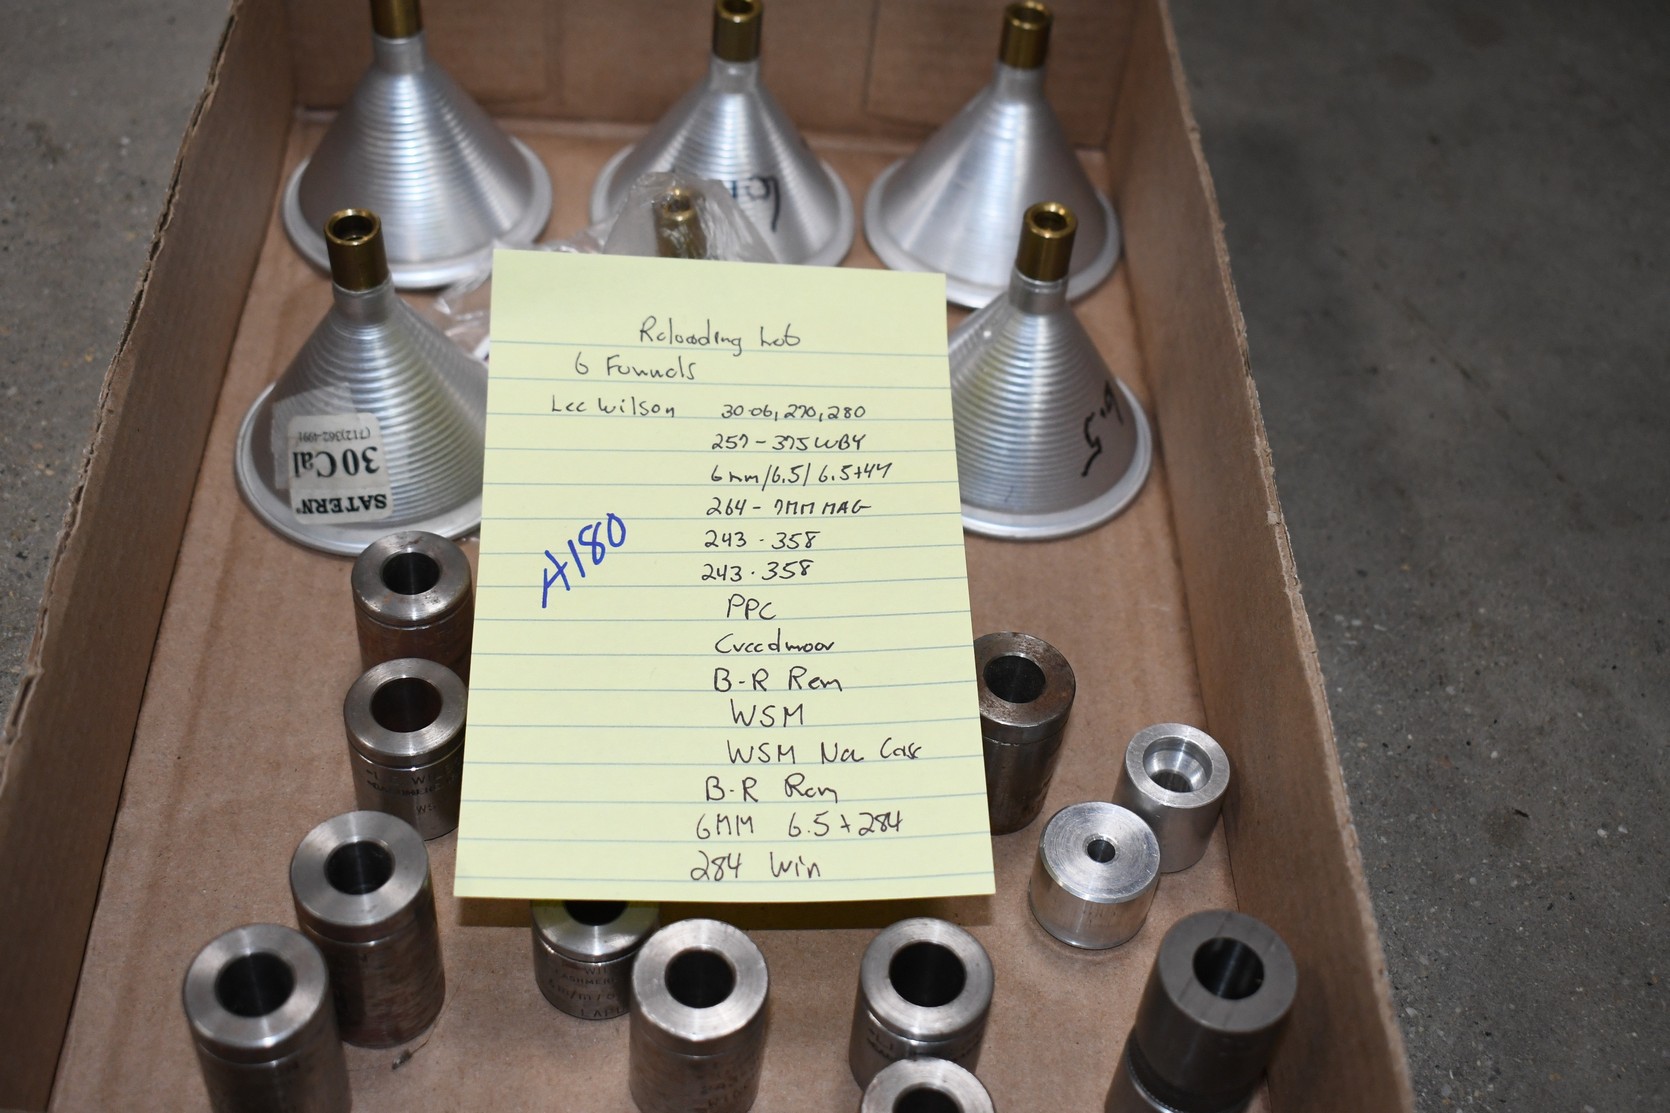 6.5
SATERN
30 Cal
(712)362-4991
Reloading Lot
6 Funnels
Lee Wilson 30-06, 270, 280
257 - 375 WBY
6mm/6.5/6.5+47
264 - 7MM MAG
243 - 358
243 - 358
PPC
Creedmoor
B-R Rem
WSM
WSM No Case
B-R Rem
6MM 6.5 + 284
284 Win
A180